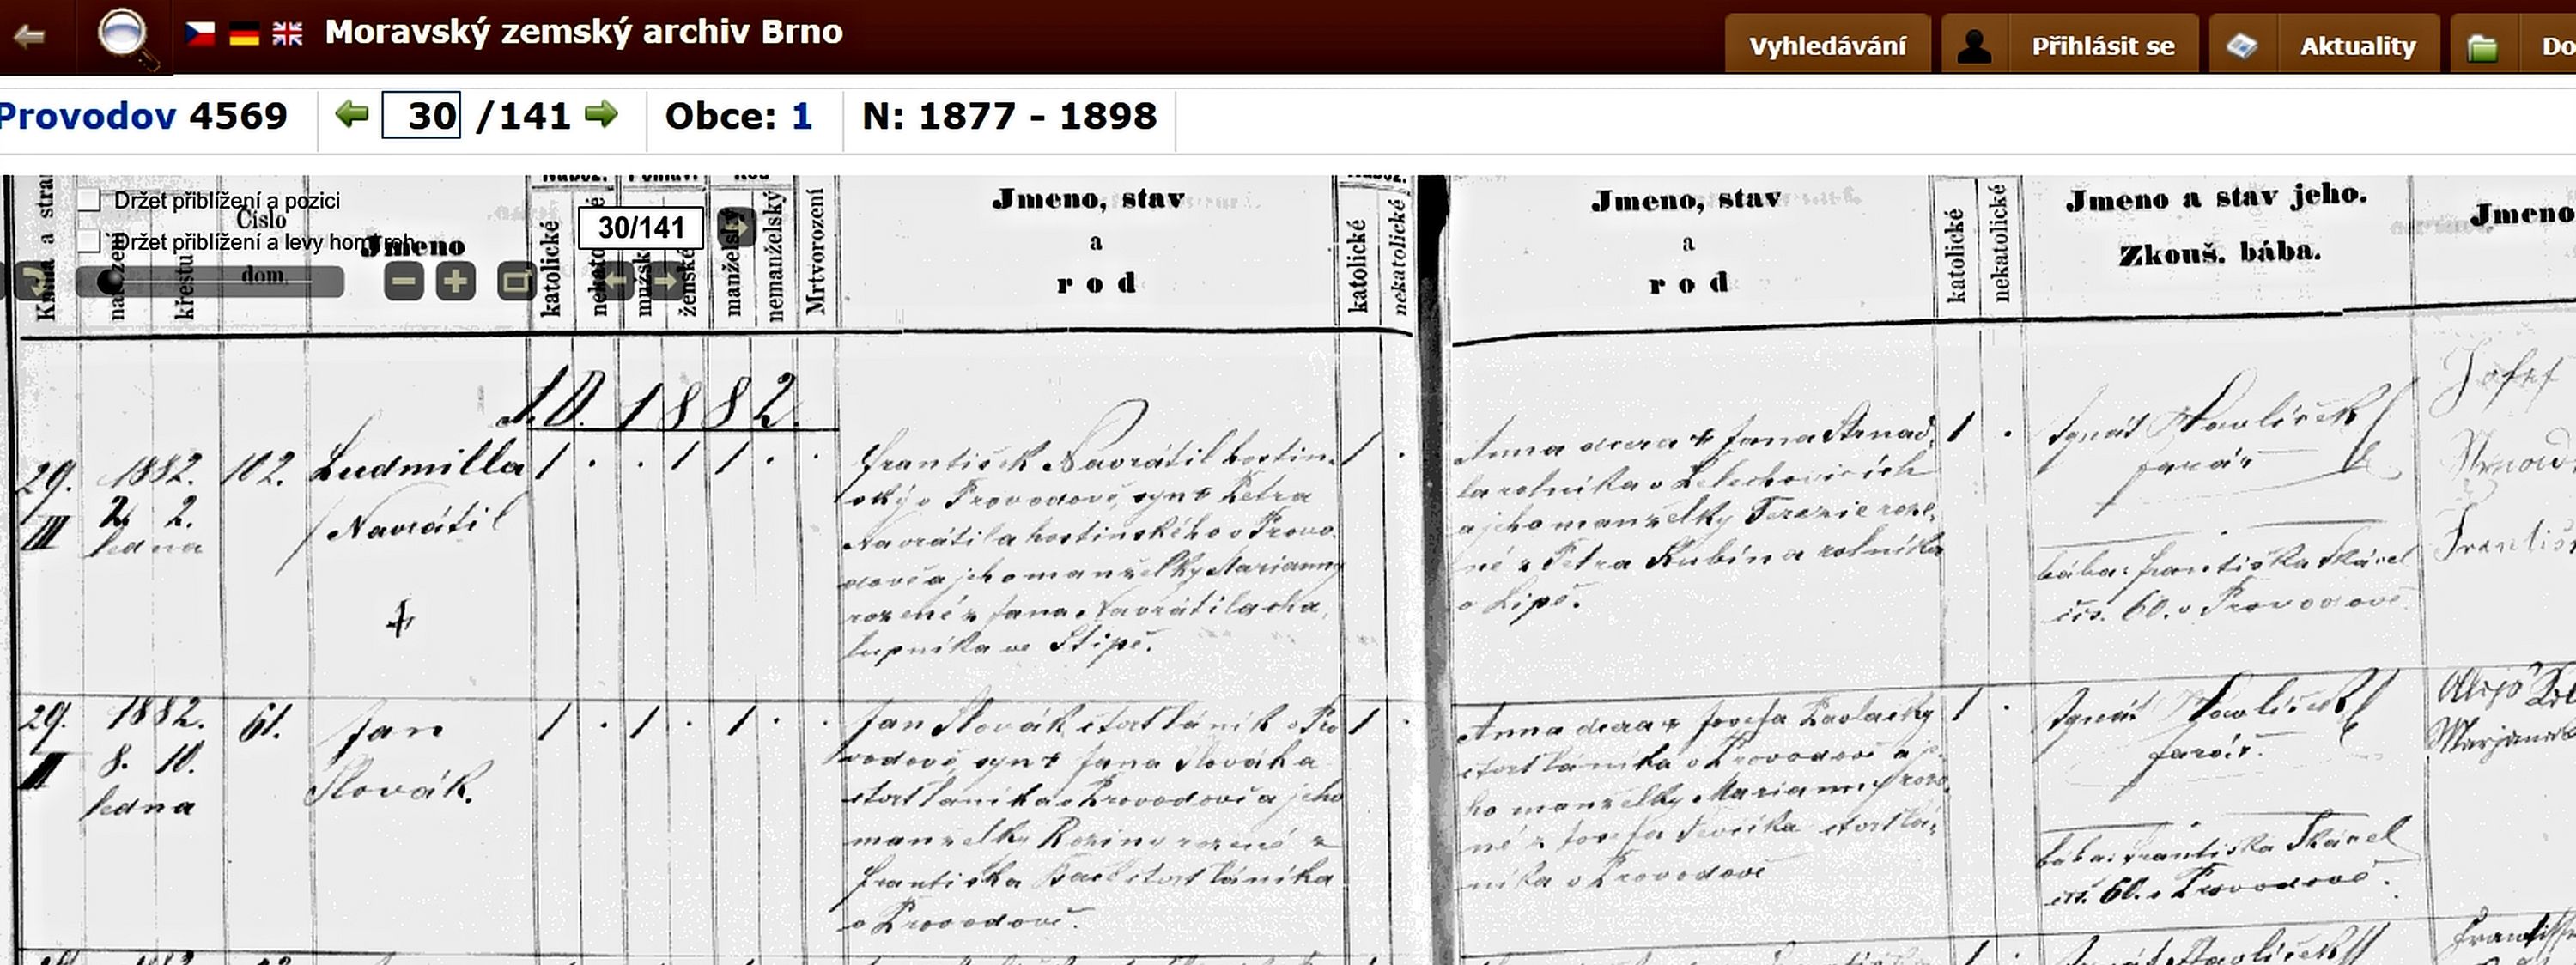 Moravský zemský archiv Brno
Vyhledávání
Přihlásit se
Aktuality
Do
Provodov 4569
30 /141
Obce: 1
N: 1877 - 1898
Držet přiblížení a pozici
Držet přiblížení a levý horní roh
30/141
Kniha a stra
křestu
Číslo
dom.
Jmeno
katolické
mužské
ženské
manželský
nemanželský
Mrtvorození
Jmeno, stav
a
rod
katolické
nekatolické
Jmeno, stav
a
rod
katolické
nekatolické
Jmeno a stav jeho.
Zkouš. bába.
Jmeno
1882.
29.
III
1882.
2. 2.
ledna
102.
Ludmilla
Navrátil
František Navrátil hostin-
ský v Provodově, syn Petra
Navrátila hostinského v Provo-
dově a jeho manželky Marianny
rozené z Jana Navrátila cha-
lupníka ve Štípě.
Anna dcera Jana Strnad-
la rolníka v Lelechovicích
a jeho manželky Terezie roze-
né z Petra Kubína rolníka
v Lípě.
Ignát Havlíček
farář
bába: Františka Skácel
čís. 60. v Provodově
Josef
29.
III
1882.
8. 10.
ledna
61.
Jan
Slovák.
Jan Slovák čtvrtláník v Pro
vodově, syn Jana Slováka
čtvrtláníka v Provodově a jeho
manželky Roziny rozené z
Františka čtvrtláníka
v Provodově.
Anna dcera Josefa
čtvrtláníka v Provodově a je-
ho manželky Marianny roze-
né z Josefa Ševčíka čtvrtlá-
níka v Provodově
Ignát Havlíček
farář.
bába: Františka Skácel
čís. 60. v Provodově.
Alojs